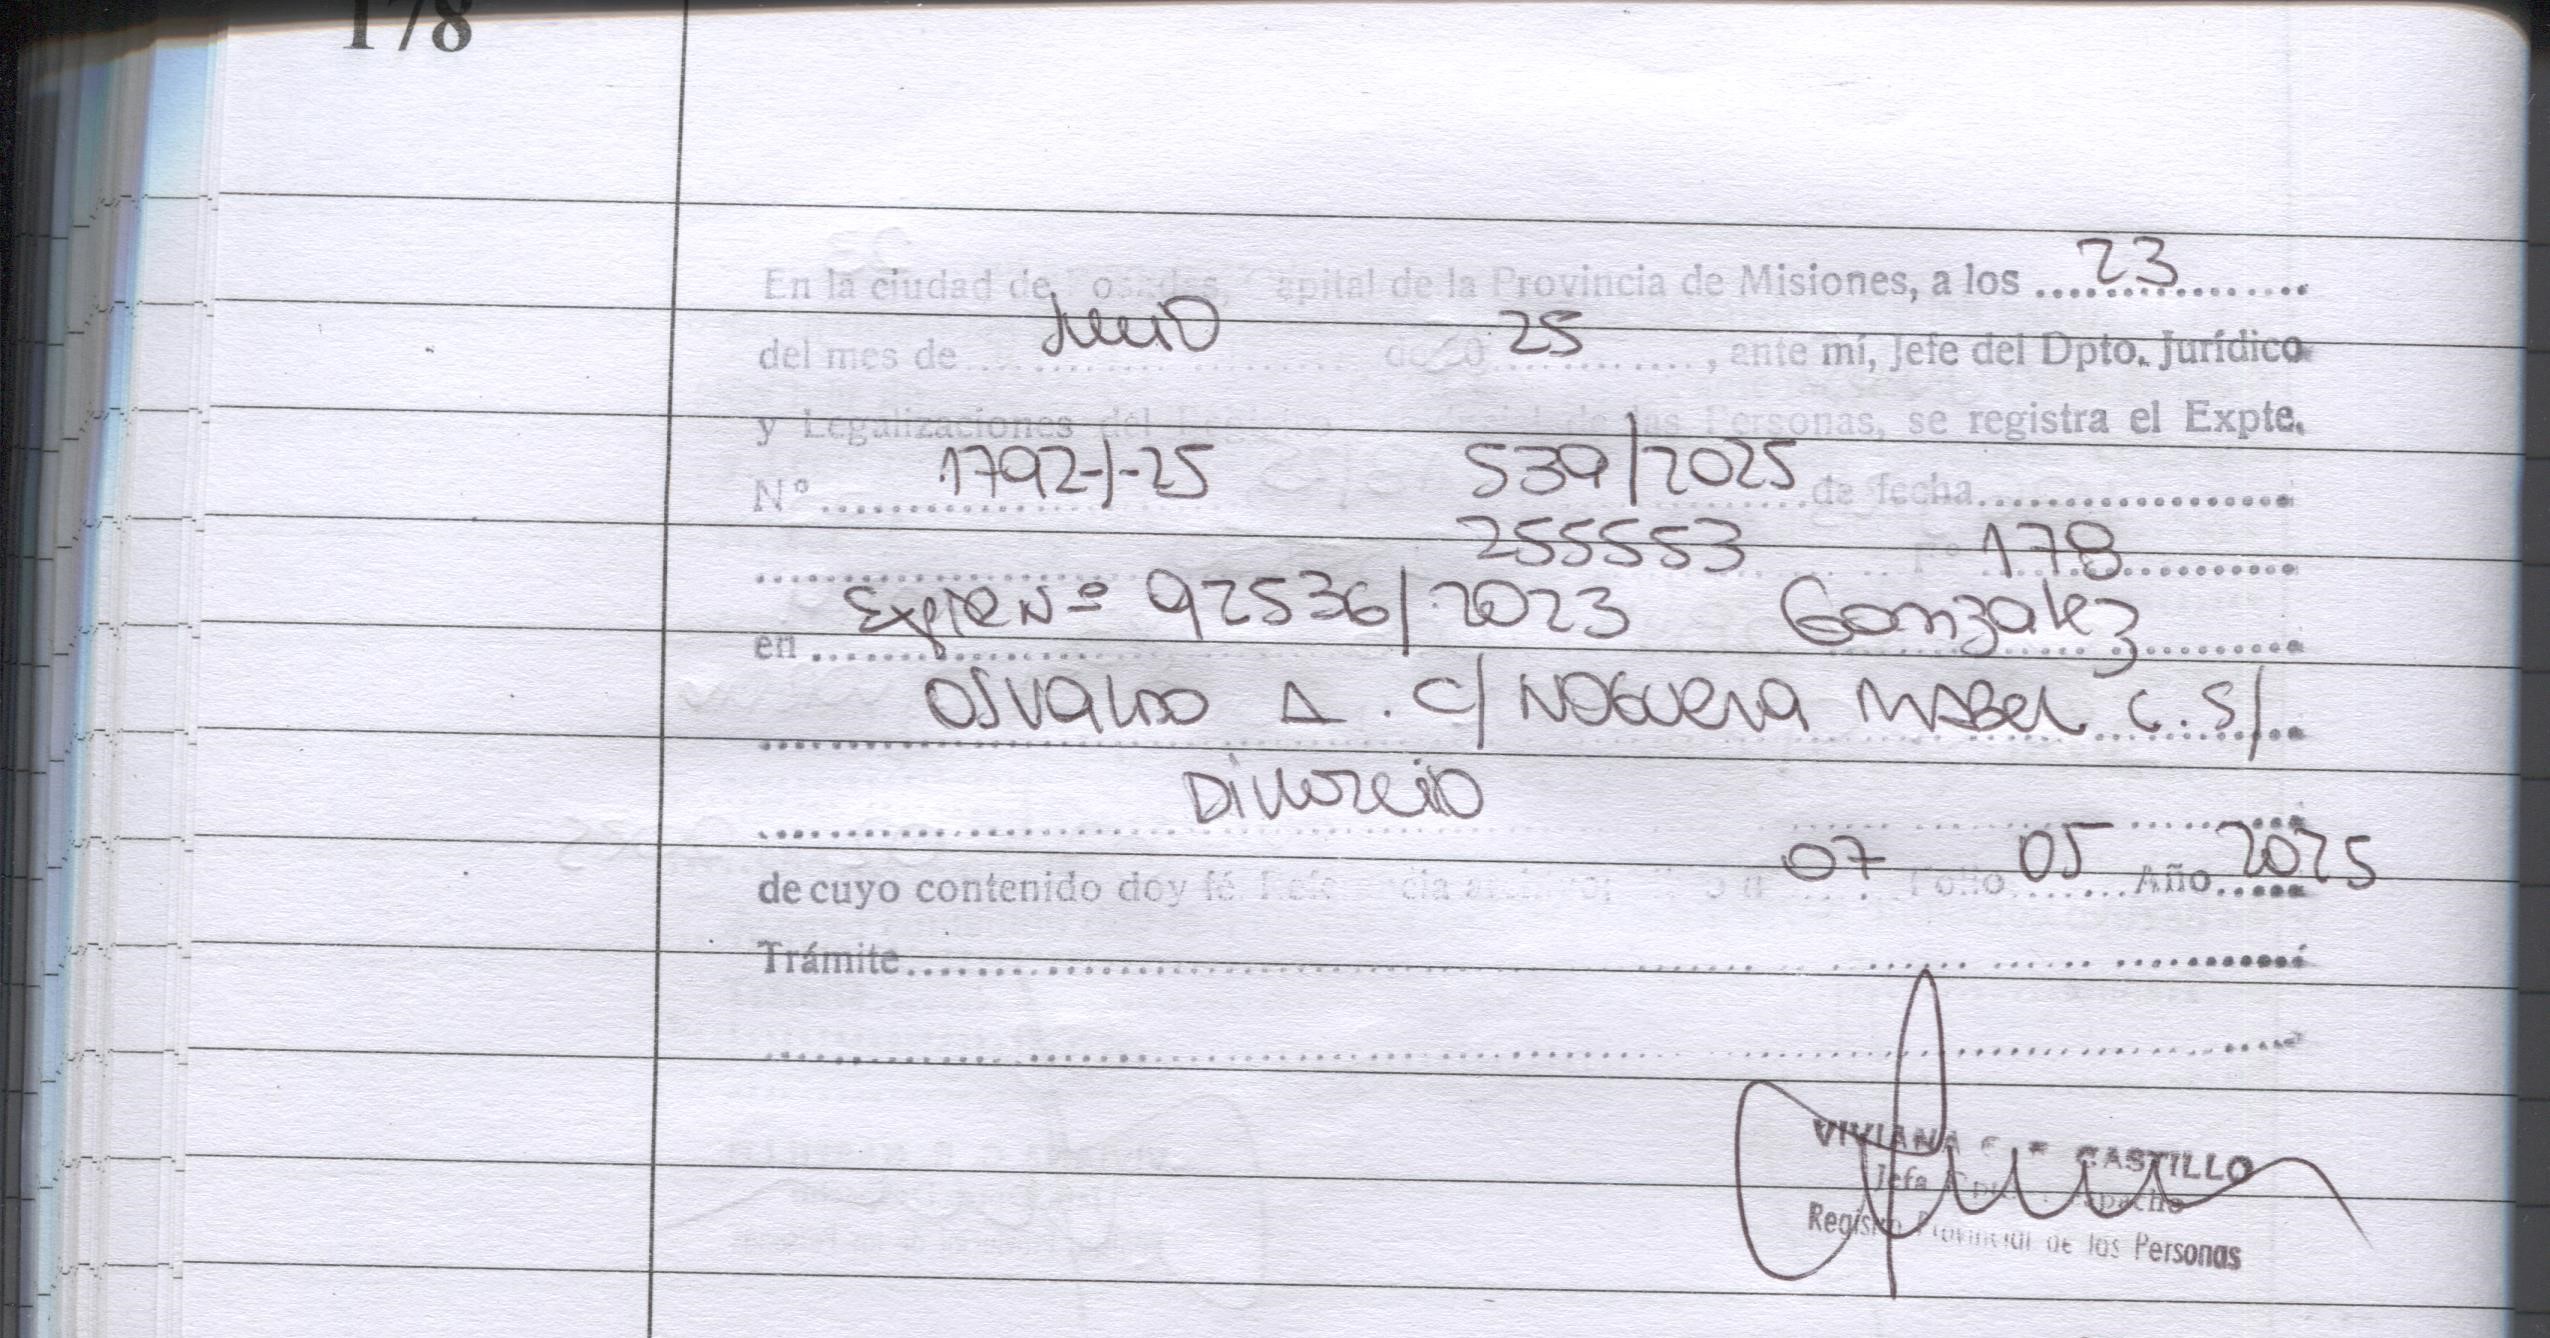 178
En la ciudad de Posadas, Capital de la Provincia de Misiones, a los 23
del mes de de 20 25, ante mí, Jefe del Dpto. Jurídico
y Legalizaciones del Registro Provincial de las Personas, se registra el Expte.
Nº 1792-/-25 539/2025 de fecha
255553 Fº 178
en Expte Nº 92536/2023 Gonzalez
Osvaldo A. C/ Noguera Mabel C. S/
Divorcio
de cuyo contenido doy fé. Referencia 07 Folio 05 Año 2025
Trámite
VIVIANA CASTILLO
Jefa Despacho
Registro Provincial de las Personas